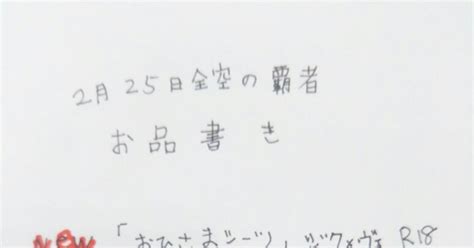 2月25日全空の覇者
お品書き
New 「おひさまシーツ」ジク×ヴォ R18